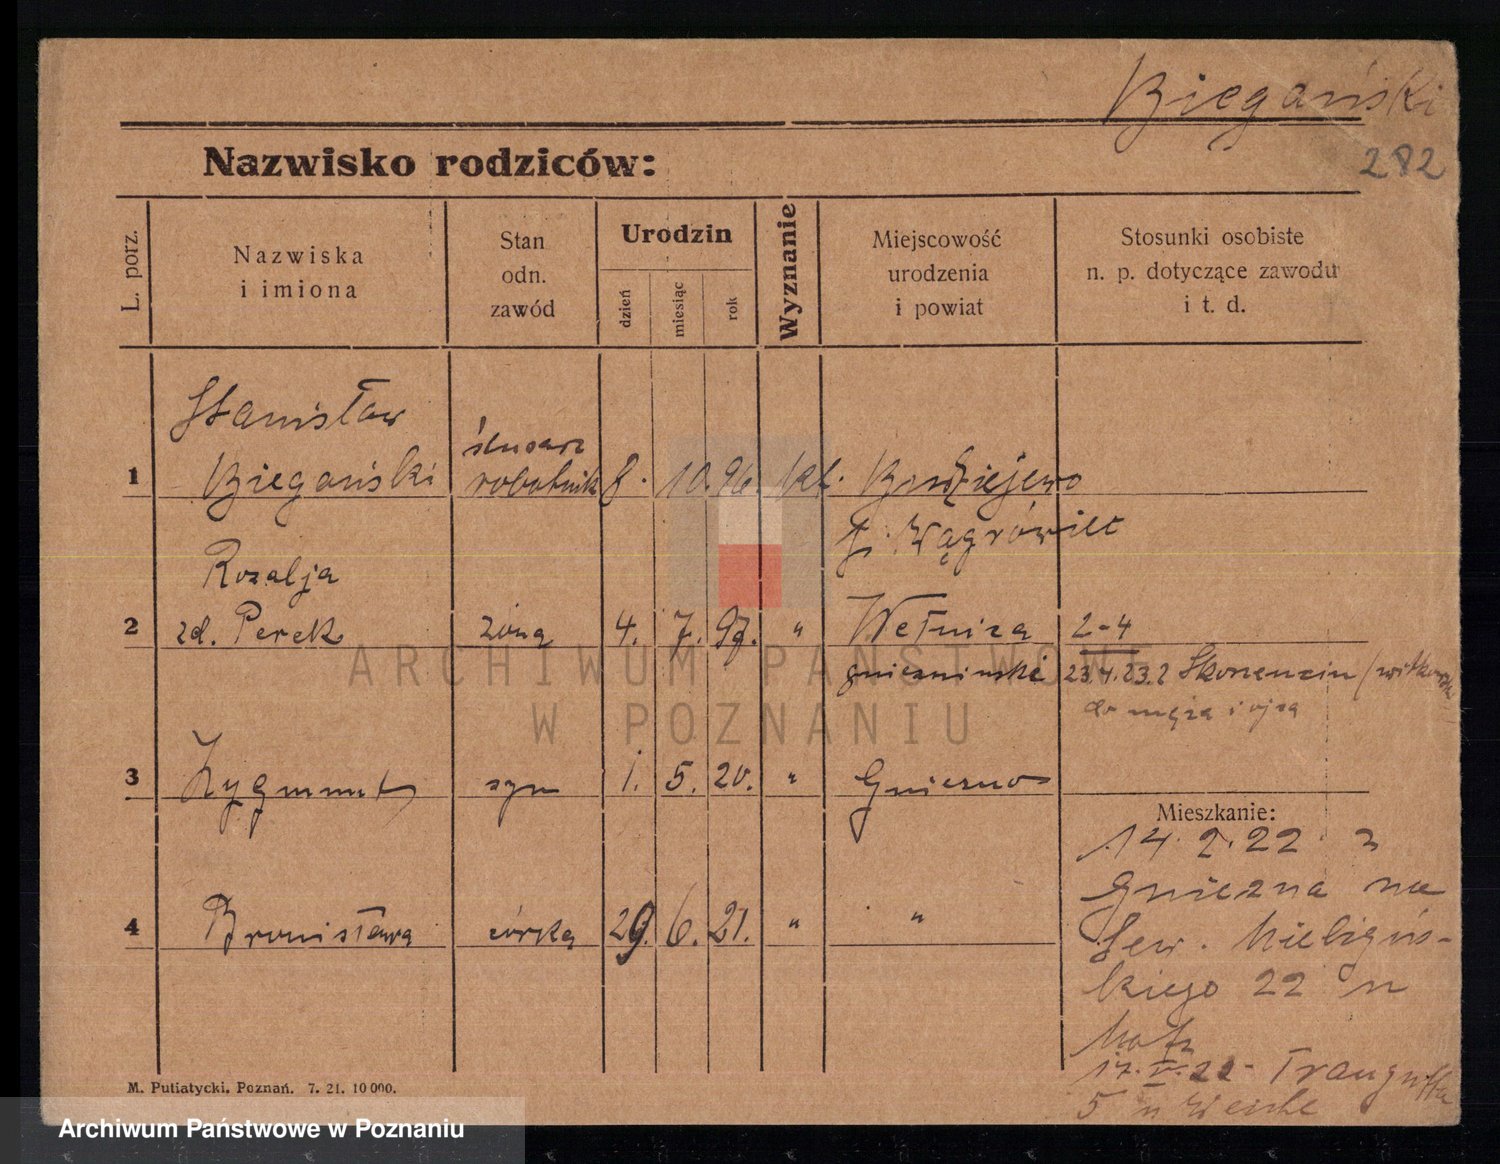 Biegański
282
Nazwisko rodziców:
L. porz.
Nazwiska
i imiona
Stan
odn.
zawód
Urodzin
dzień
miesiąc
rok
Wyznanie
Miejscowość
urodzenia
i powiat
Stosunki osobiste
n. p. dotyczące zawodu
i t. d.
Stanisław
1 Biegański ślusarz robotnik 8. 10. 96. kt. Budziejewo
Wągrówiec
Rozalja
2 zd. Perek żona 4. 7. 97. " Wełnica 2-4
gnieźnieński 23.4.23. Skorzencin
do męża i ojca
3 Zygmunt syn 1. 5. 20. " Gniezno
Mieszkanie:
14. 2. 22 z
Gniezna na
4 Bronisława córka 29. 6. 21. " "
Sew. Mielżyńs-
kiego 22 u
17. V. 22 - Traugutta
5 u
M. Putiatycki, Poznań. 7. 21. 10 000.
ARCHIWUM PAŃSTWOWE
W POZNANIU
Archiwum Państwowe w Poznaniu